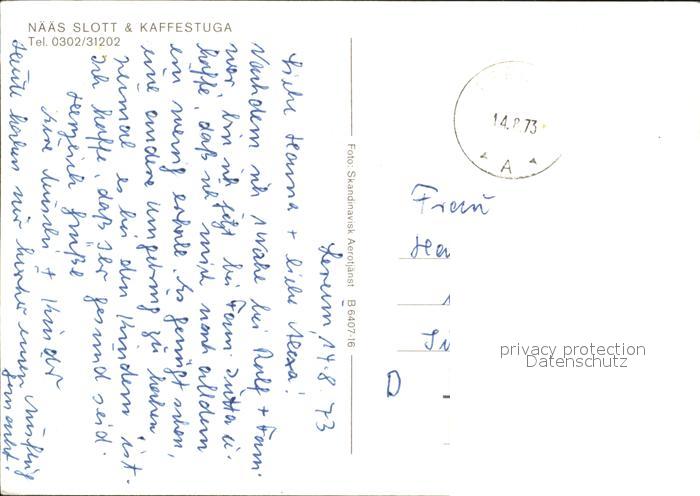 NÄÄS SLOTT & KAFFESTUGA
Tel. 0302/31202
Lerum, 14.8.73
Liebe Hanna + liebe
Nachdem ich 1 Woche bei Rolf + Fam.
war, bin ich jetzt bei Fam.
hoffe, daß ich mich nach alldem
ein wenig erhole. Es genügt schon,
eine andere Umgebung zu haben,
zumal es bei den Kindern ist.
Ich hoffe, daß Ihr gesund seid.
Herzliche Grüße
Eure + Kinder
Heute haben wir hierher einen Ausflug
gemacht.
Foto: Skandinavisk Aerotjänst B 6407-16
14.8.73
A
Frau
D
privacy protection
Datenschutz